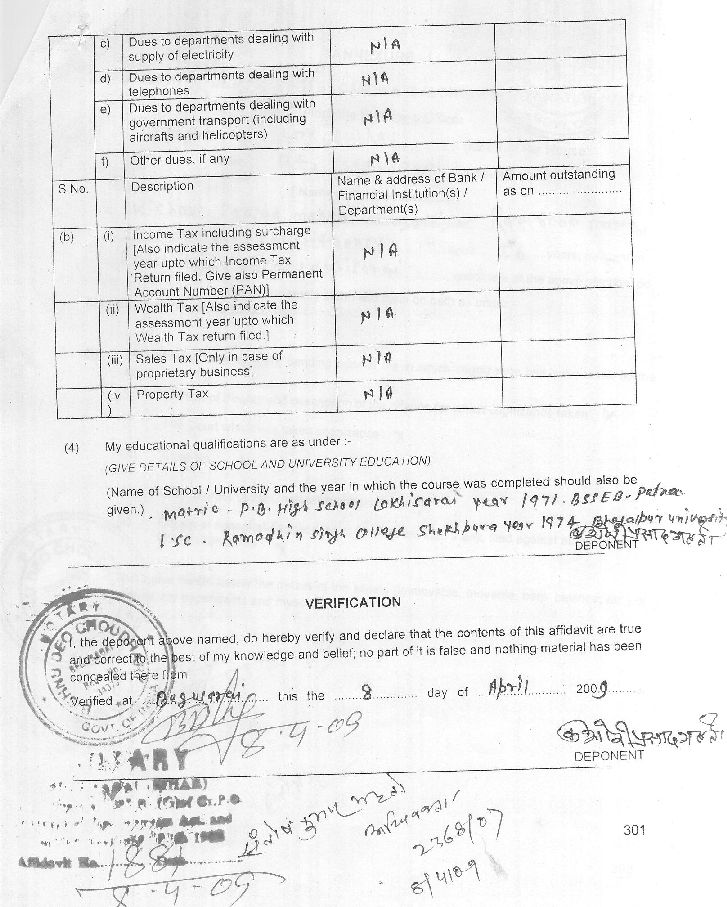 c) Dues to departments dealing with supply of electricity N/A
d) Dues to departments dealing with telephones N/A
e) Dues to departments dealing with government transport (including aircrafts and helicopters) N/A
f) Other dues, if any N/A
S No. Description Name & address of Bank / Financial Institution(s) / Department(s) Amount outstanding as on ........................
(b) (i) Income Tax including surcharge [Also indicate the assessment year upto which Income Tax Return filed. Give also Permanent Account Number (PAN)] N/A
(ii) Wealth Tax [Also indicate the assessment year upto which Wealth Tax return filed.] N/A
(iii) Sales Tax [Only in case of proprietary business] N/A
(v) Property Tax N/A
(4) My educational qualifications are as under :-
(GIVE DETAILS OF SCHOOL AND UNIVERSITY EDUCATION)
(Name of School / University and the year in which the course was completed should also be
given.) Matric - P.B. High School Lakhisarai year 1971. BSSEB - Patna
I.Sc. Ramadhin singh College Shekhpura year 1974 Bhagalpur university
DEPONENT
VERIFICATION
I, the deponent above named, do hereby verify and declare that the contents of this affidavit are true
and correct to the best of my knowledge and belief; no part of it is false and nothing material has been
concealed there from
Verified at Begusarai this the 8 day of April 2009
8-4-09
DEPONENT
NOTARY
GOVT. OF
NOTARY
(BIHAR)
Cr.P.C
Affidavit No. 1881
8-4-09
2368/07
8/4/09
301